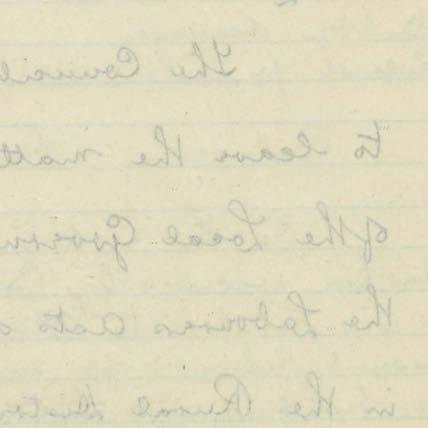 The Council
to leave the matt
of the Local Govern
the Labourers Acts
in the Rural Distri